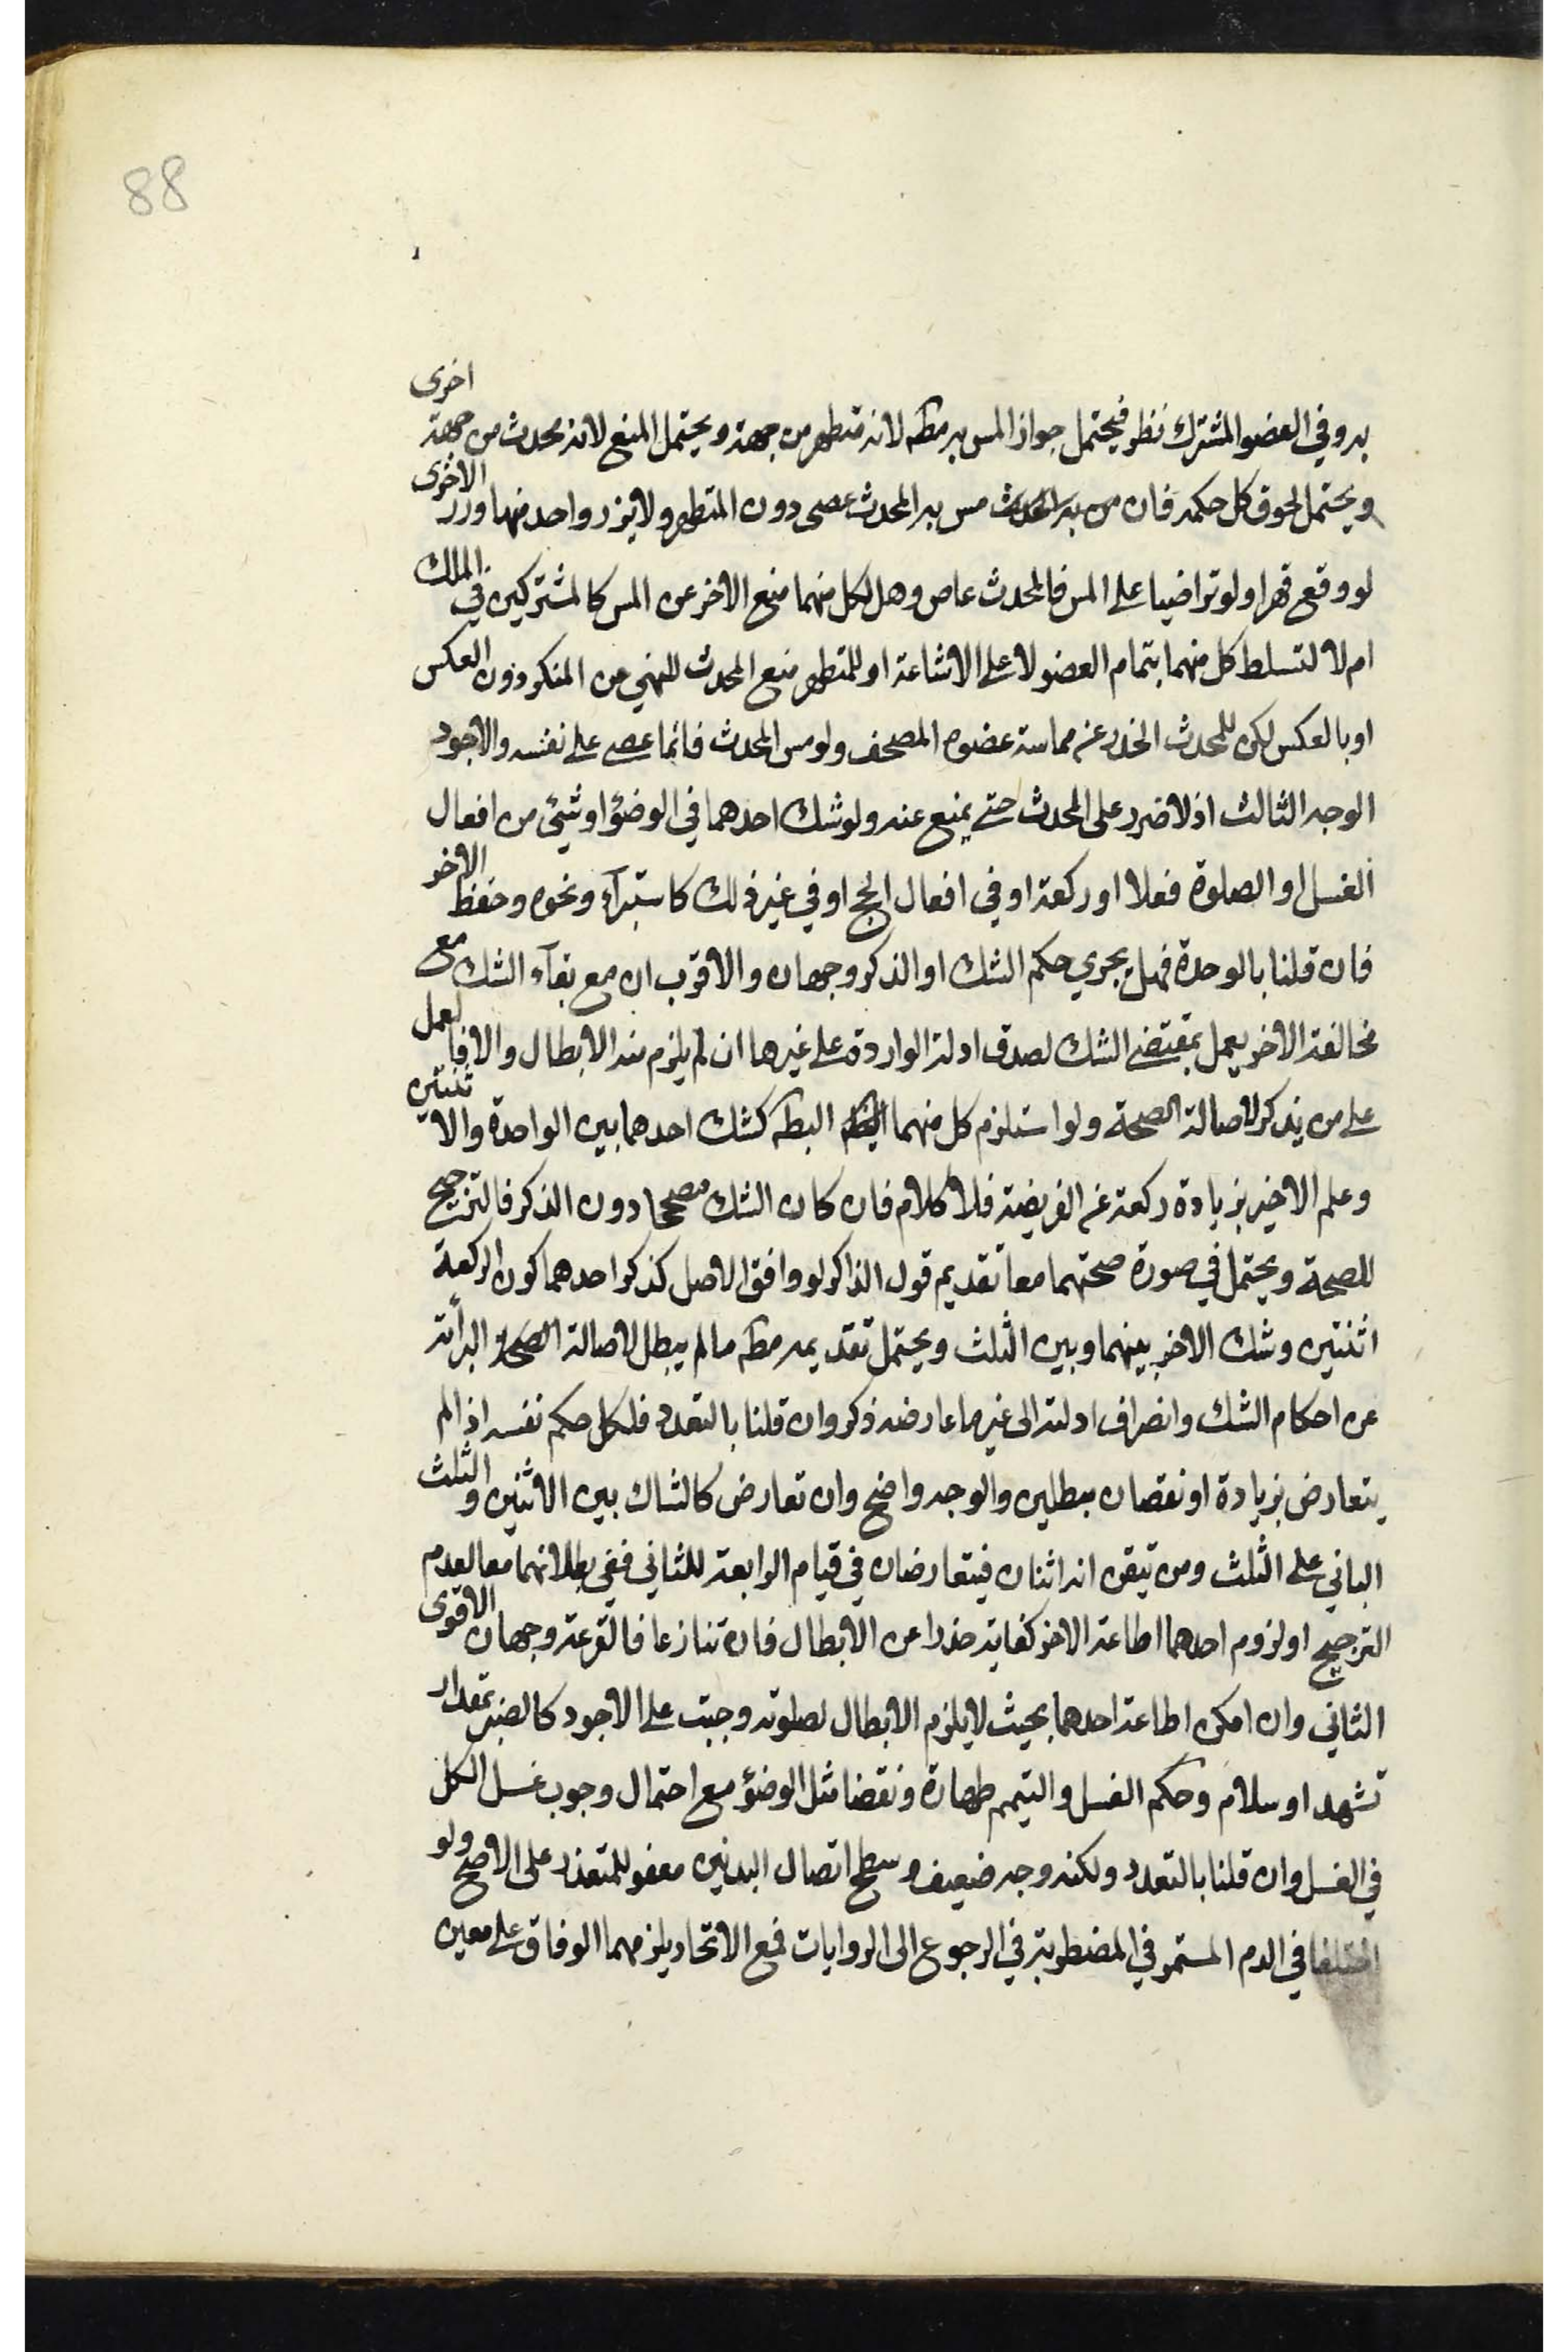 88
به وفي العضو المشترك نظر فيحتمل جواز المس به مطه لانه متطهر من جهة ويحتمل المنع لانه محدث من جهة اخرى
ويحتمل لحوق كل حكمه فان مس به المحدث عصى دون المتطهر ولا يزر واحد منهما وزر الاخرى
لو وقع قهرا ولو تراضيا على المس فالمحدث عاص وهل لكل منهما منع الاخر عن المس كالمشتركين في الملك
ام لا لتسلط كل منهما بتمام العضو لا على الاشاعة او للمتطهر منع المحدث للنهي عن المنكر دون العكس
او بالعكس لكن للمحدث الحذر عن مماسة عضوه المصحف ولو مس المحدث فانما عصى على نفسه والاجود
الوجه الثالث اذ لا ضرر على المحدث حتى يمنع عنه ولو شك احدهما في الوضؤ او شئ من افعال
الغسل او الصلوة فعلا او ركعة او في افعال الحج او في غير ذلك كاستبرآء ونحوه وحفظ الاخر
فان قلنا بالوحدة فهل يجري حكم الشك او الذكر وجهان والاقرب ان مع بقآء الشك مع
مخالفة الاخر يعمل بمقتضى الشك لصدق ادلة الواردة على غيرها ان لم يلزم منه الابطال والا فالعمل
على من يذكر لاصالة الصحة ولو استلزم كل منهما البطه كشك احدهما بين الواحدة والاثنتين
وعلم الاخير بزيادة ركعة عن الفريضة فلا كلام فان كان الشك مصححا دون الذكر فالترجيح
للصحة ويحتمل في صورة صحتهما معا تقديم قول الذاكر لو وافق الاصل كذكر احدهما كون الركعة
اثنتين وشك الاخر بينهما وبين الثلث ويحتمل تقديمه مطه ما لم يبطل لاصالة البرأئة
عن احكام الشك وانصراف ادلته الى غير ما عارضه ذكر وان قلنا بالتعدد فلكل حكم نفسه اذا لم
يتعارض بزيادة او نقصان مبطلين والوجه واضح وان تعارض كالشاك بين الاثنين والثلث
الباني على الثلث ومن تيقن انه اثنان فيتعارضان في قيام الرابعة للثاني ففي بطلانهما معا لعدم
الترجيح او لزوم احدهما اطاعة الاخر كفاية حذرا عن الابطال فان تنازعا فالقرعة وجهان الاقوى
الثاني وان امكن اطاعة احدهما بحيث لا يلزم الابطال لصلوته وجبت على الاجود كالصبر بمقدار
تشهد او سلام وحكم الغسل والتيمم طهارة ونقضا مثل الوضؤ مع احتمال وجوب غسل الكل
في الغسل وان قلنا بالتعدد ولكنه وجه ضعيف وسطح اتصال البدنين معفو للمتعذر على الاصح ولو
اختلفا في الدم المستمر في المضطربة في الرجوع الى الروايات فمع الاتحاد يلزمهما الوفاق على معين